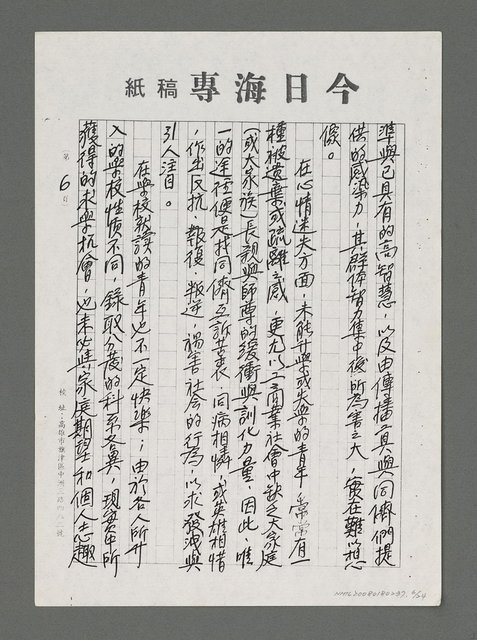 今日海專稿紙
準與已具有的高智慧，以及由傳播工具與同儕們提
供的感染力，其群體智力集中後所為害之大，實在難以想
像。
在心情迷失方面，未能升學或失學的青年，常常有一
種被遺棄或疏離之感，更尤以工商業社會中缺乏大家庭
（或大家族）長親與師尊的緩衝與訓化力量，因此，唯
一的途徑便是找同儕互訴苦衷，同病相憐，或英雄相惜
，作出反抗、報復、叛逆、禍害社會的行為，以求發洩與
引人注目。
在學校就讀的青年也不一定快樂；由於各人所升
入的學校性質不同，錄取分發的科系各異，現實中所
獲得的求學機會，也未必與家庭期望和個人志趣
第6頁
校址：高雄市旗津區中洲三路四八二號
NMTL20080180297 6/24